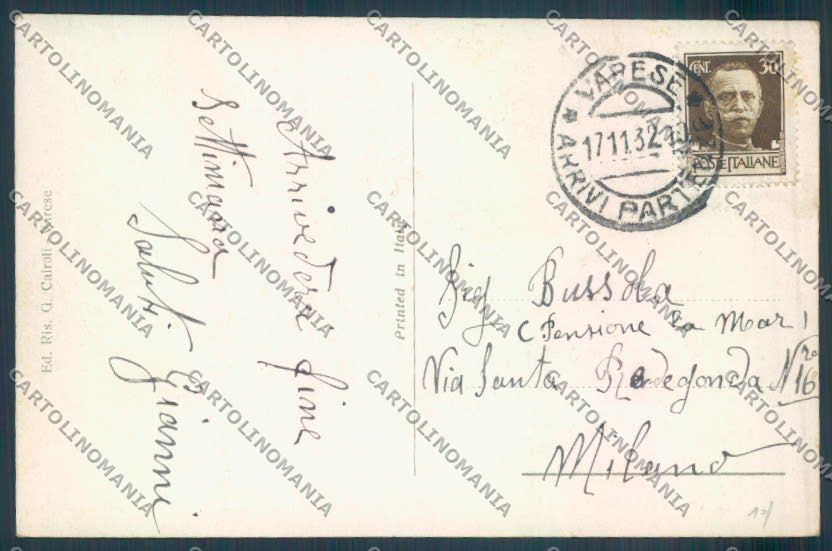 Arrivederci fine
Settimana
Saluti Gianni
Ed. Ris. G. Cairoli - Varese
Printed in Italy
CENT. 30
POSTE ITALIANE
VARESE
17 11 32
ARRIVI PARTENZE
Sig Bussola
(Pensione La Mar)
Via Santa Radegonda Nro 16
Milano
CARTOLINOMANIA